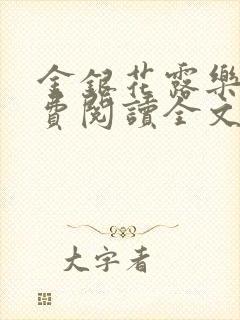 金銀花露樂
費閱讀全文
大字者